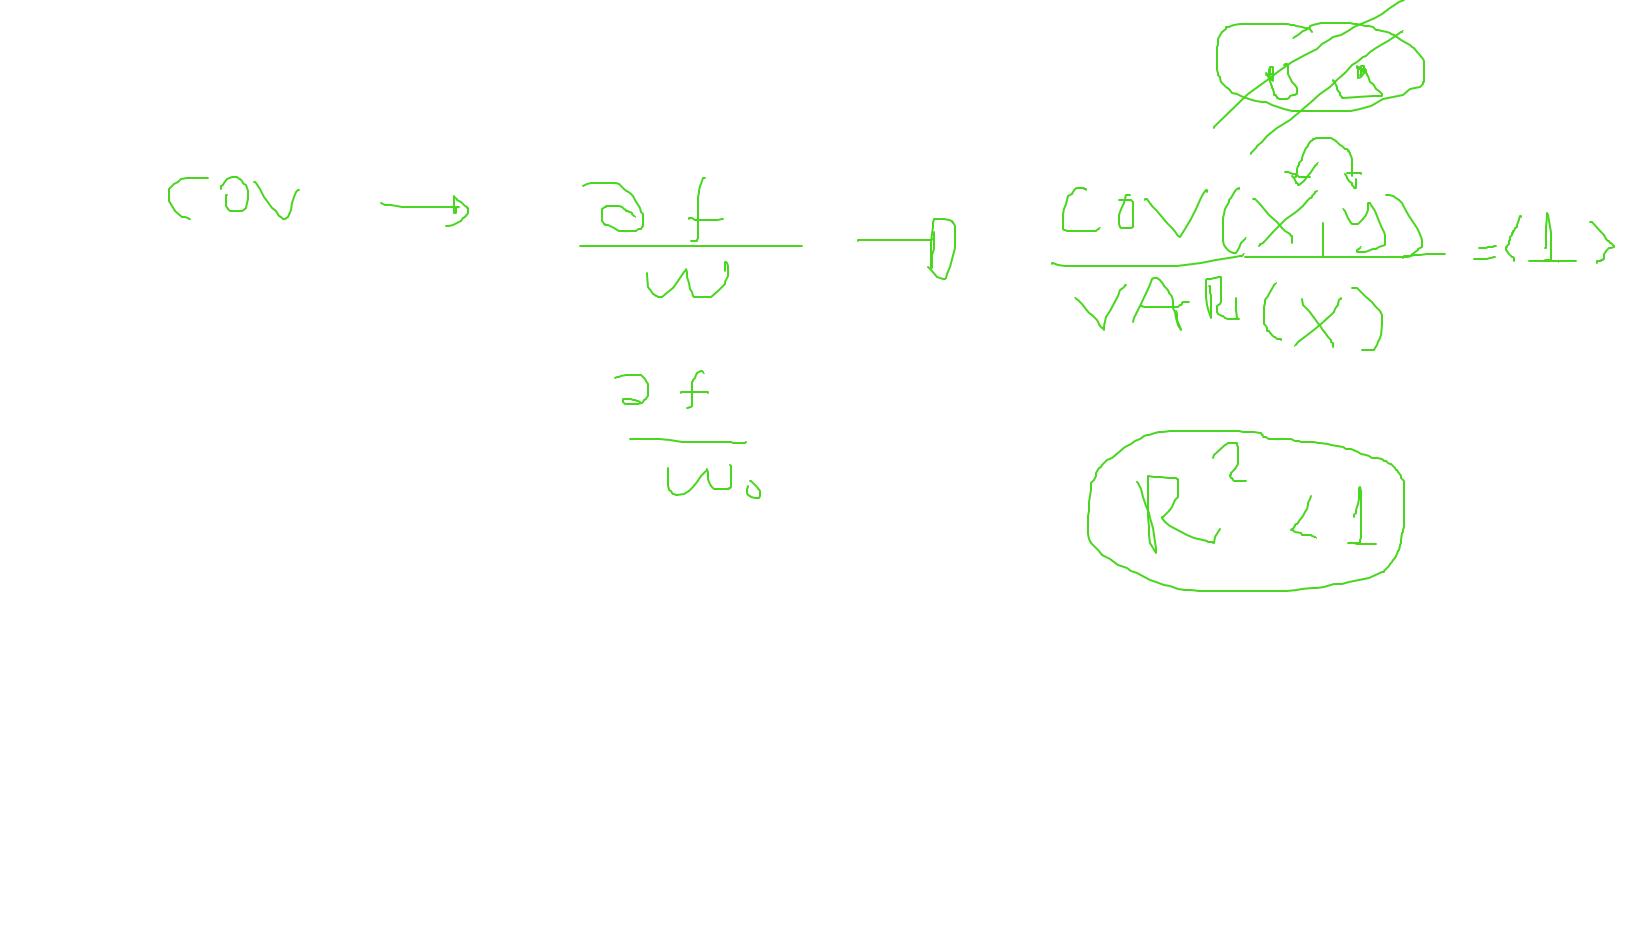 COV → ∂f/W → COV(X,Y)/VAR(X) = (1)
∂f/W₀
R² < 1